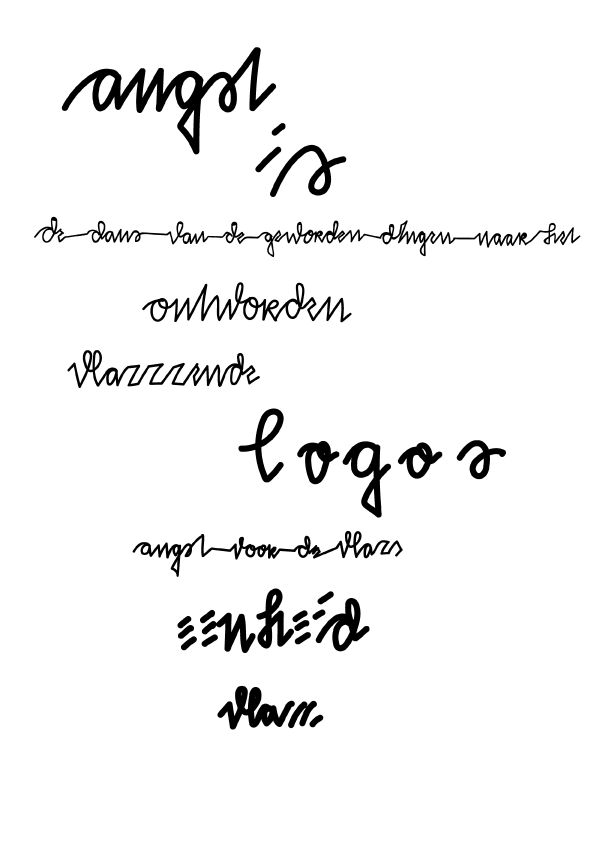 angst
is
de dans van de geworden dingen naar het
ontworden
vlazzzende
logos
angst voor de vlazs
eenheid
vlazz